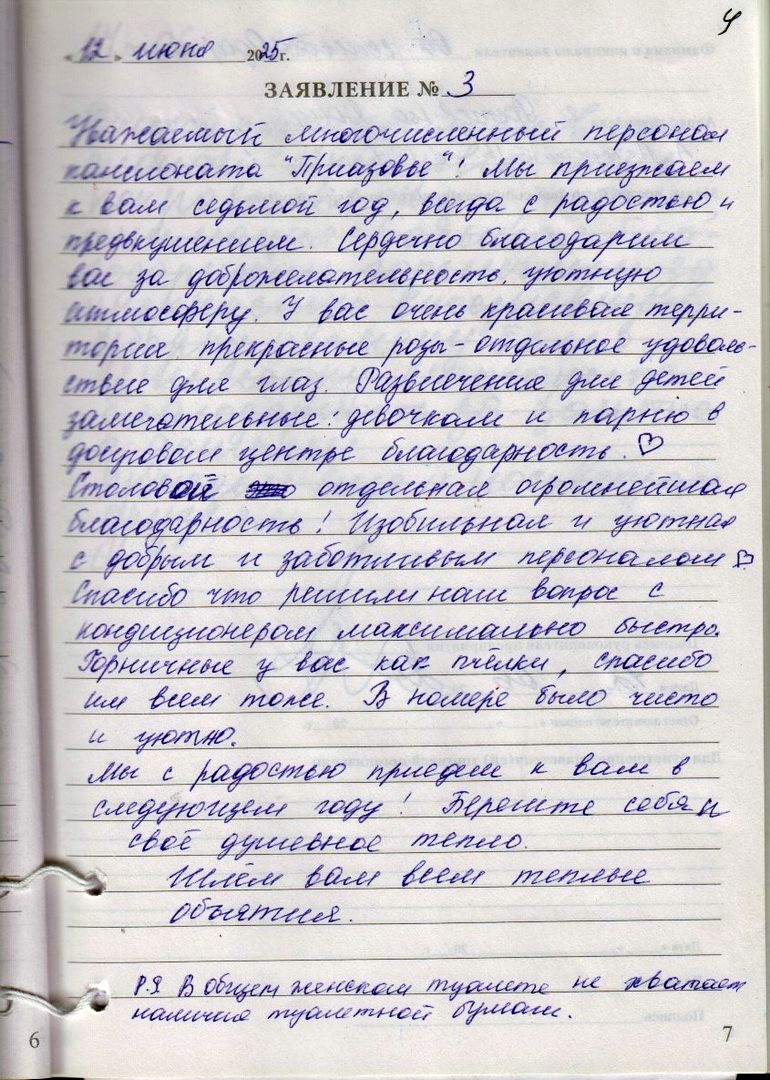 4
"12" июня 2025 г.
ЗАЯВЛЕНИЕ № 3
Уважаемый многочисленный персонал
пансионата "Приазовье"! Мы приезжаем
к вам седьмой год, всегда с радостью и
предвкушением. Сердечно благодарим
вас за доброжелательность, уютную
атмосферу. У вас очень красивая терри-
тория прекрасные розы - отдельное удоволь-
ствие для глаз. Развлечения для детей
замечательные: девочкам и парню в
досуговом центре благодарность. ♡
Столовой отдельная огромнейшая
благодарность! Изобильная и уютная
с добрым и заботливым персоналом ♡
Спасибо что решили наш вопрос с
кондиционером максимально быстро.
Горничные у вас как пчёлки, спасибо
им всем тоже. В номере было чисто
и уютно.
Мы с радостью приедем к вам в
следующем году! Берегите себя и
своё душевное тепло.
Шлём вам всем теплые
объятия.
P.S. В общем женском туалете не хватает
наличия туалетной бумаги.
6
7